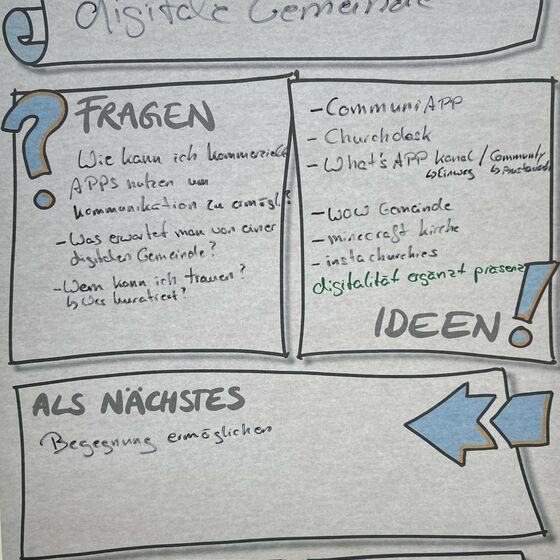 digitale Gemeinde
FRAGEN
Wie kann ich kommerzielle
APPS nutzen um
Kommunikation zu ermögl.?
- Was erwartet man von einer
digitalen Gemeinde?
- Wem kann ich trauen?
↳ Wer kuratiert?
- Communi APP
- Churchdesk
- What's APP Kanal / Community
↳ Einweg ↳ Austausch
- WOW Gemeinde
- minecraft kirche
- instachurches
digitalität ergänzt präsenz
IDEEN!
ALS NÄCHSTES
Begegnung ermöglichen